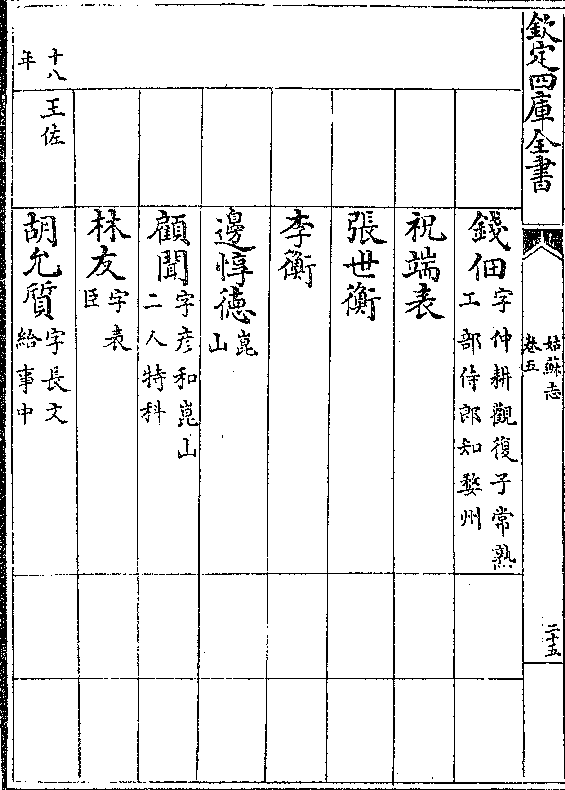 欽定四庫全書
姑蘇志
卷五
二十五
錢佃字仲耕觀復子常熟
工部侍郎知婺州
祝端表
張世衡
李衡
邊惇德崑
山
顧聞字彦和崑山
二人特科
林友字表
臣
十八
年
王佐
胡允質字長文
給事中